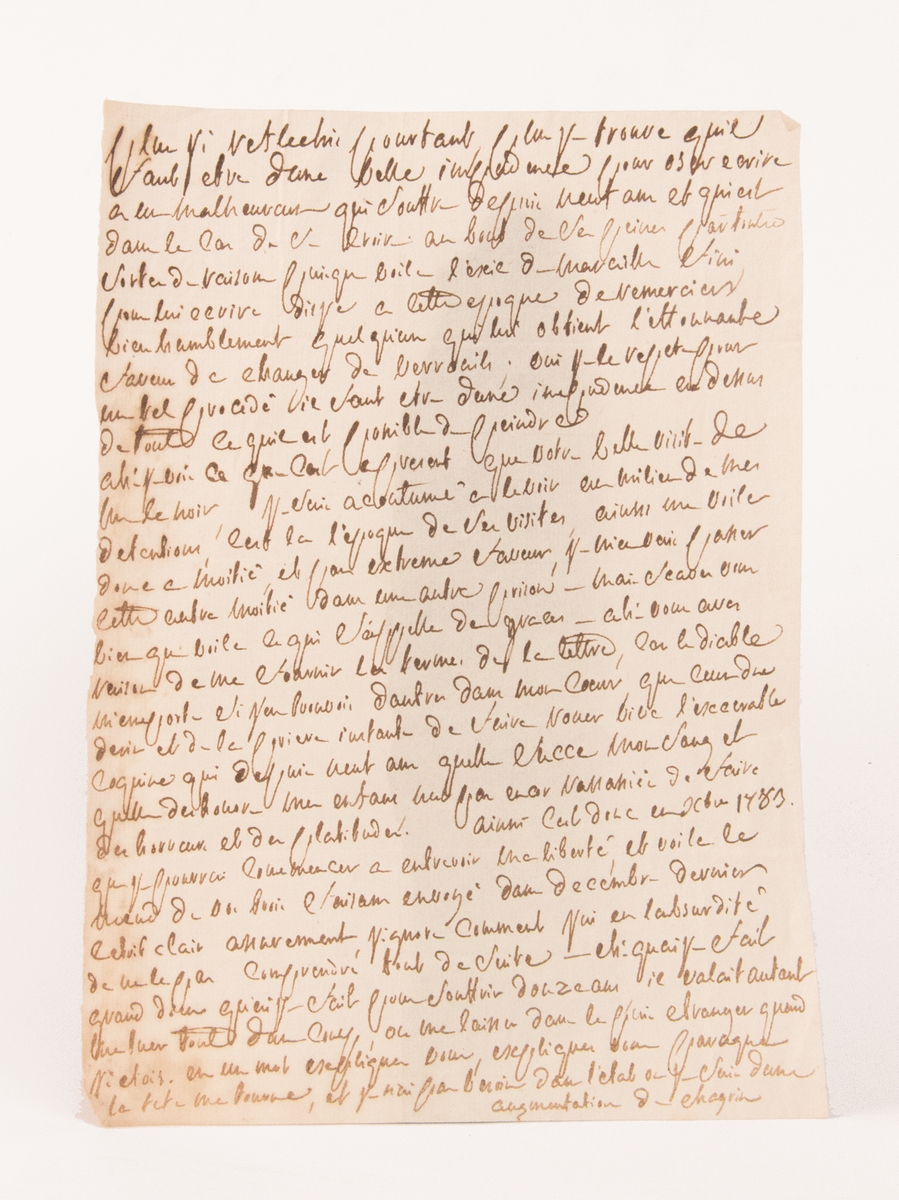 plus j'i reflechis pourtant, plus je trouve quil
faut etre dune belle impudence pour oser ecrire
a un malheureux qui souffre depuis neuf ans et qui est
dans le cas de se croire au bout de ses peines par toutes
sortes de raisons puisque voila l'exil de marseille fini
pour lui ecrire disje a cette epoque de remercier
bien humblement quelquun qui lui obtient l'ettonnante
faveur de changer de verrouils; oui je le repete pour
un tel procedé il faut etre dune impudence en dessus
de toute ce quil est possible de peindre
ah je vois ce que cest apresent que votre belle visite de
mr le noir, je suis acoutumé a le voir au milieu de mes
detentions, cest la l'epoque de ses visites, ainsi me voila
donc a moitié, et par extreme faveur, je men vais passer
cette autre moitié dans une autre prison – mais scavez vous
bien que voila ce qui s'appelle des graces – ah vous avez
raison de me fournir les termes de la lettre, car le diable
m'emporte si jen trouvois dautres dans mon coeur, que ceux du
desir et de la priere instante de faire rouer vive l'execrable
coquine qui depuis neuf ans quelle succe mon sang et
quelle deshonore mes enfans nest pas encor rassasiée de faire
des horreurs et des platitudes. ainsi cest donc en xbre 1783.
que je pourrai commencer a entrevoir ma liberté, et voila le
nœud de vos trois faisans envoyé dans decembre dernier
cetoit clair assurement, j'ignore comment j'ai eu l'absurdité
de ne le pas comprendre tout de suite – eh quai je fait
grand dieu quai je fait pour souffrir douze ans il valait autant
me tuer tout dun coup, ou me laisser dans le pais etranger quand
j'i etois. en un mot expliquez vous, expliquez vous parceque
la tete me tourne, et je nai pas besoin dans l'etat ou je suis dune
augmentation de chagrin